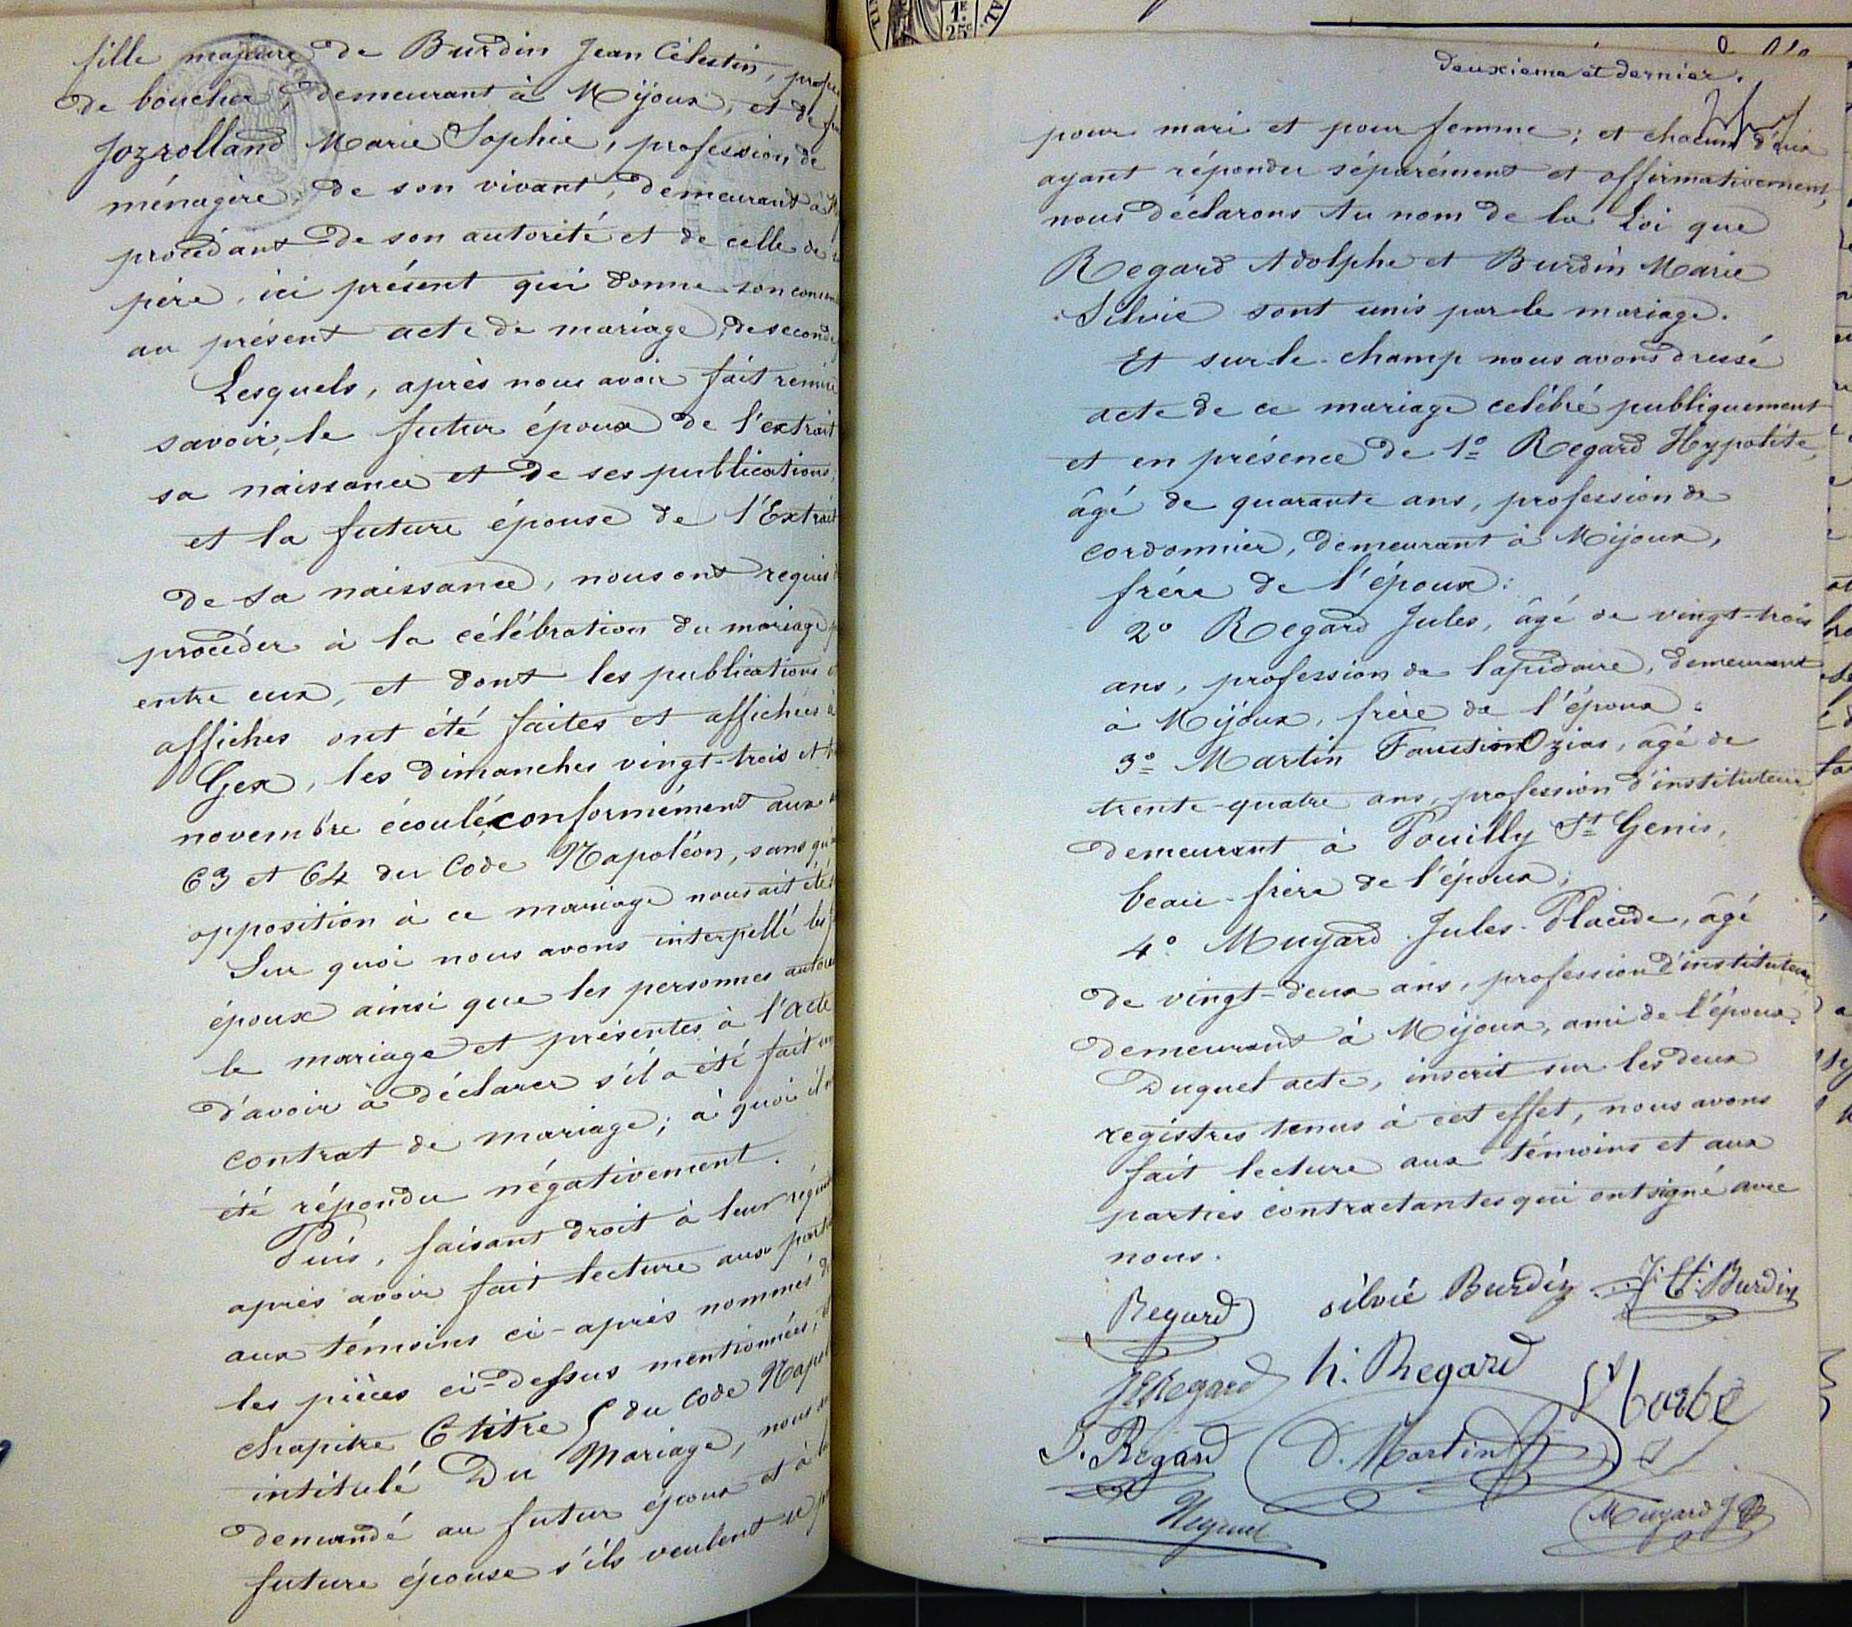 fille majeure de Burdin Jean Célestin,
de boucher, demeurant à Mijoux, et de
Jozrolland Marie Sophie, profession de
ménagère, de son vivant, demeurant à
procédant de son autorité et de celle de
père, ici présent qui donne son
au présent acte de mariage, de seconde
Lesquels, après nous avoir fait
savoir, le futur époux de l'extrait
sa naissance et de ses publications,
et la future épouse de l'Extrait
de sa naissance, nous ont requis
procéder à la célébration du mariage
entre eux, et dont les publications
affiches ont été faites et affichées à
Gex, les dimanches vingt-trois et
novembre écoulé, conformément aux
63 et 64 du Code Napoléon, sans
opposition à ce mariage nous ait été
Sur quoi nous avons interpellé les
époux ainsi que les personnes
le mariage et présentes à l'acte
d'avoir à déclarer s'il a été fait
contrat de mariage; à quoi il
été répondu négativement.
Puis, faisant droit à leur
après avoir fait lecture aux
aux témoins ci-après nommés
les pièces ci-dessus mentionnées,
chapitre 6 titre 5 du Code
intitulé Du Mariage, nous
demandé au futur époux et à
future épouse s'ils veulent se
1F
25c
deuxième et dernier.
pour mari et pour femme; et chacun d'eux
ayant répondu séparément et affirmativement,
nous déclarons Au nom de la Loi que
Regard Adolphe et Burdin Marie
Silvie sont unis par le mariage.
Et sur-le-champ nous avons dressé
acte de ce mariage célébré publiquement
et en présence de 1º Regard Hypolite,
âgé de quarante ans, profession de
cordonnier, demeurant à Mijoux,
frère de l'époux:
2º Regard Jules, âgé de vingt-trois
ans, profession de lapidaire, demeurant
à Mijoux, frère de l'époux:
3º Martin Faustin Ozias, âgé de
trente-quatre ans, profession d'instituteur
demeurant à Pouilly St Genis,
beau-frère de l'époux;
4º Muyard Jules-Placide, âgé
de vingt-deux ans, profession d'instituteur
demeurant à Mijoux, ami de l'époux.
Duquel acte, inscrit sur les deux
registres tenus à cet effet, nous avons
fait lecture aux témoins et aux
parties contractantes qui ont signé avec
nous.
Regard silvie Burdin J. Ct. Burdin
Regard h. Regard
J. Regard O. Martin
Muyard J